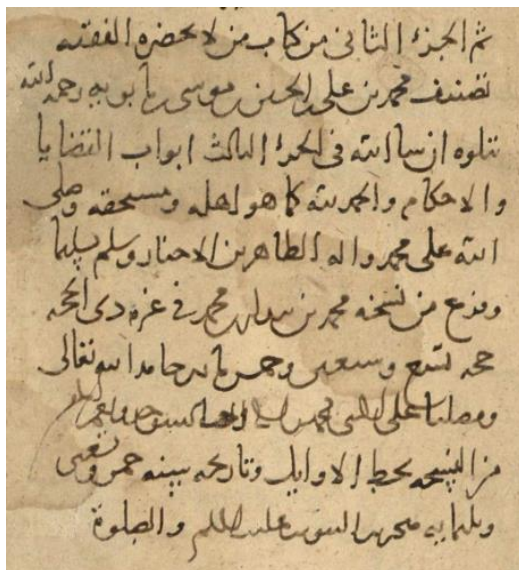 تم الجزء الثاني من كتاب من لا يحضره الفقيه
تصنيف محمد بن علي بن الحسين بن موسى بن بابويه رحمه الله
يتلوه ان شا الله في الجزء الثالث ابواب القضايا
والاحكام والحمد لله كما هو اهله ومستحقه وصلى
الله على محمد واله الطاهرين الاخيار وسلم تسليما
وفرغ من نسخه محمد بن محمد في غرة ذي الحجة
حجة تسع وسبعين وخمس مائة حامدا لله تعالى
ومصليا على النبي محمد
من النسخة بخط الاوايل وتاريخه سنة خمس وتسعين
والصلوة